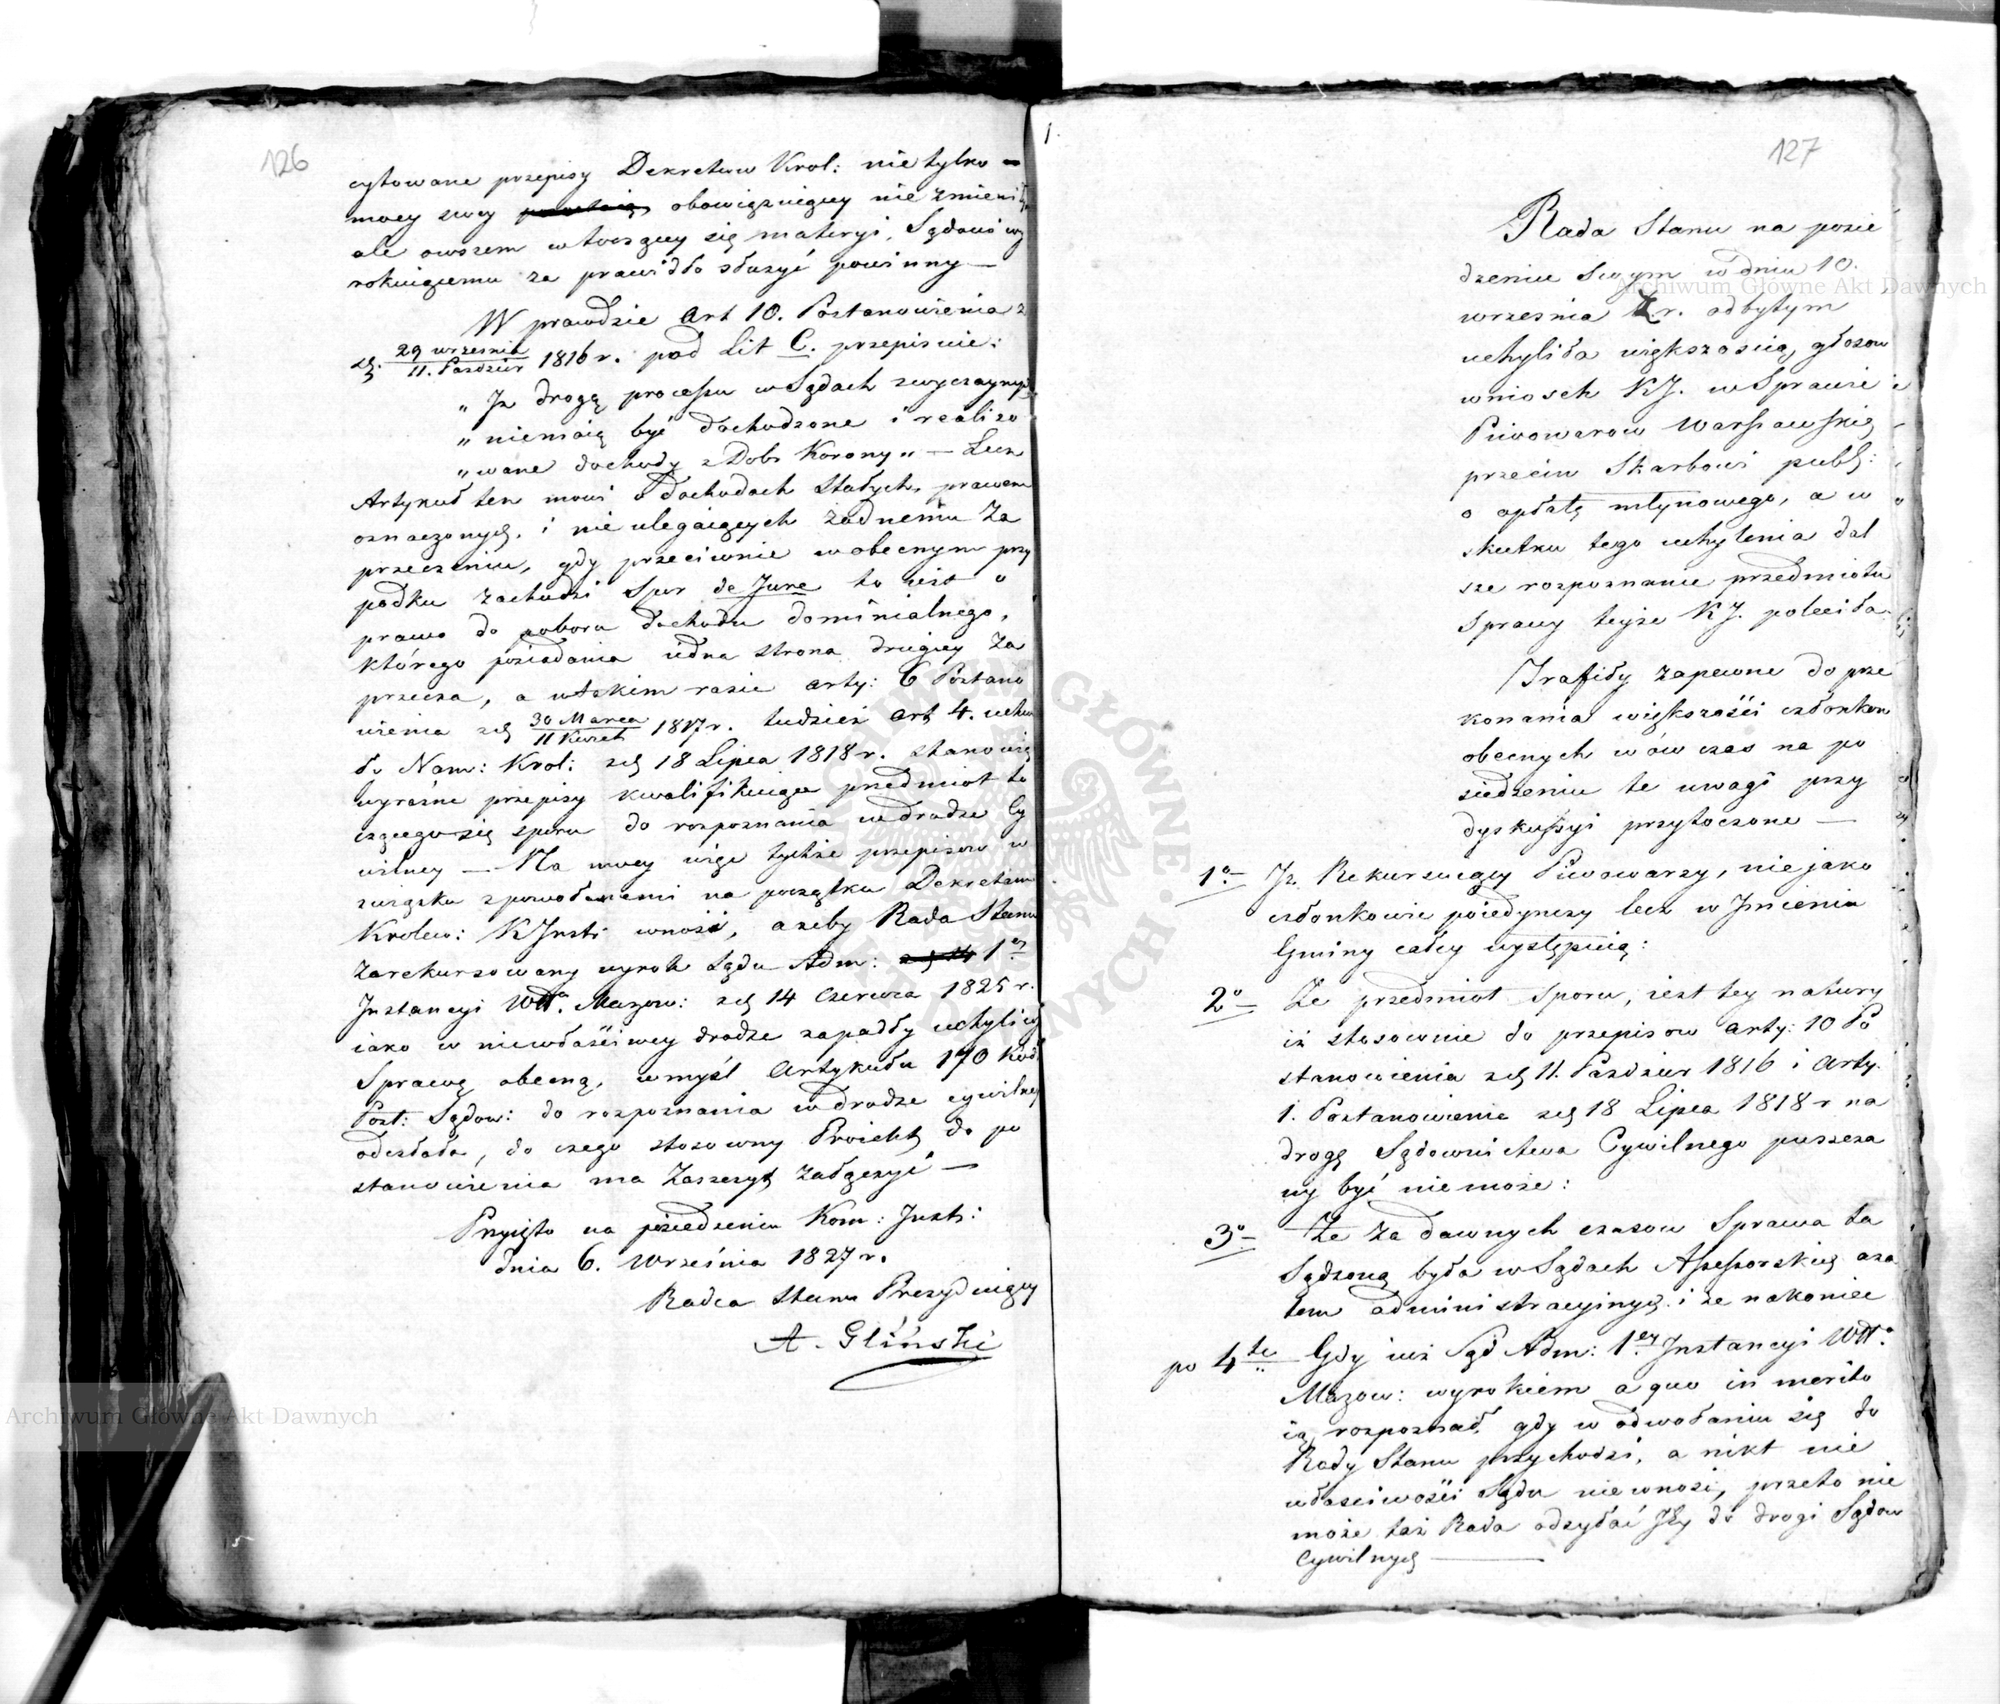 126
cytowane przepisy Dekretow Krol: nie tylko
mocy swey obowięzuiącey nie zmieni
ale owszem w toczącey się materyi, Sądowi wy
rokuiącemu za prawidło słuzyć powinny —
W prawdzie Art 10. Postanowienia z
d. 29 września / 11. Pazdzier 1816 r. pod Lit C. przepisuie:
„Iz drogą processu w Sądach zwyczaynych
„niemaią być dochodzone i realizo
„wane dochody z Dobr Korony" — Lecz
Artykuł ten mowi o dochodach stałych, prawem
oznaczonych, i nie ulegaiących zadnemu za
przeczeniu, gdy przeciwnie w obecnym przy
padku zachodzi Spor de Jure to iest o
prawo do poboru dochodu dominialnego,
którego posiadania iedna strona drugiey za
przecza, a w takim razie arty: 6 Postano
wienia zd 30 Marca / 11 Kwiet 1817 r. tudzież art 4. uchwa
ły Nam: Krol: zd 18 Lipca 1818 r. stanowią
wyraźne przepisy kwalifikuiące przedmiot to
czącego się sporu do rozpoznania w drodze Cy
wilney — Na mocy więc tychże przepisow w
związku z powołanemi na początku Dekretami
Krolew: K Just: wnosi, azeby Rada Stanu
zarekursowany wyrok Sądu Adm: 1ey
Instancyi Wtta Mazow: zd 14 Czerwca 1825 r.
iako w niewłaściwey drodze zapadły uchyliwszy
Sprawę obecną, w myśl Artykułu 170 Kod:
Post: Sądow: do rozpoznania w drodze cywilney
odesłała, do czego stosowny Proiekt do po
stanowienia ma zaszczyt załączyć —
Przyięto na posiedzeniu Kom: Just:
dnia 6. Września 1827 r.
Radca Stanu Prezyduiący
A. Gliński
127
Rada Stanu na posie
dzeniu Swym w dniu 10.
września r. odbytym
uchyliła większością głosow
wniosek KJ. w Sprawie
Piwowarow Warszawskich
przeciw Skarbowi publ:
o opłatę młynowego, a w
skutku tego uchylenia dal
sze rozpoznanie przedmiotu
Sprawy teyze KJ. poleciła.
Trafiły zapewne do prze
konania większości członkow
obecnych wówczas na po
siedzeniu te uwagi przy
dyskussyi przytoczone —
1o Iz Rekursuiący Piwowarzy, nie jako
członkowie poiedynczy lecz w Imieniu
Gminy całey występuią:
2o Ze przedmiot sporu, iest tey natury
iż stosownie do przepisow arty: 10 Po
stanowienia zd 11. Pazdzier 1816 i Arty.
1. Postanowienia zd 18 Lipca 1818 r na
drogę Sądownictwa Cywilnego puszcza
ny być niemoże:
3o Ze za dawnych czasow Sprawa ta
Sądzoną była w Sądach Assessorskich a za
tem administracyinych i ze nakoniec
po 4te Gdy iuż Sąd Adm: 1ey Instancyi Wtta
Mazow: wyrokiem a quo in merito
ią rozpoznał, gdy w odwołaniu się do
Rady Stanu przychodzi, a nikt nie
właściwości Sądu niewnosi, przeto nie
może taż Rada odsyłać Jey do drogi Sądow
Cywilnych —
Archiwum Główne Akt Dawnych
Archiwum Główne Akt Dawnych